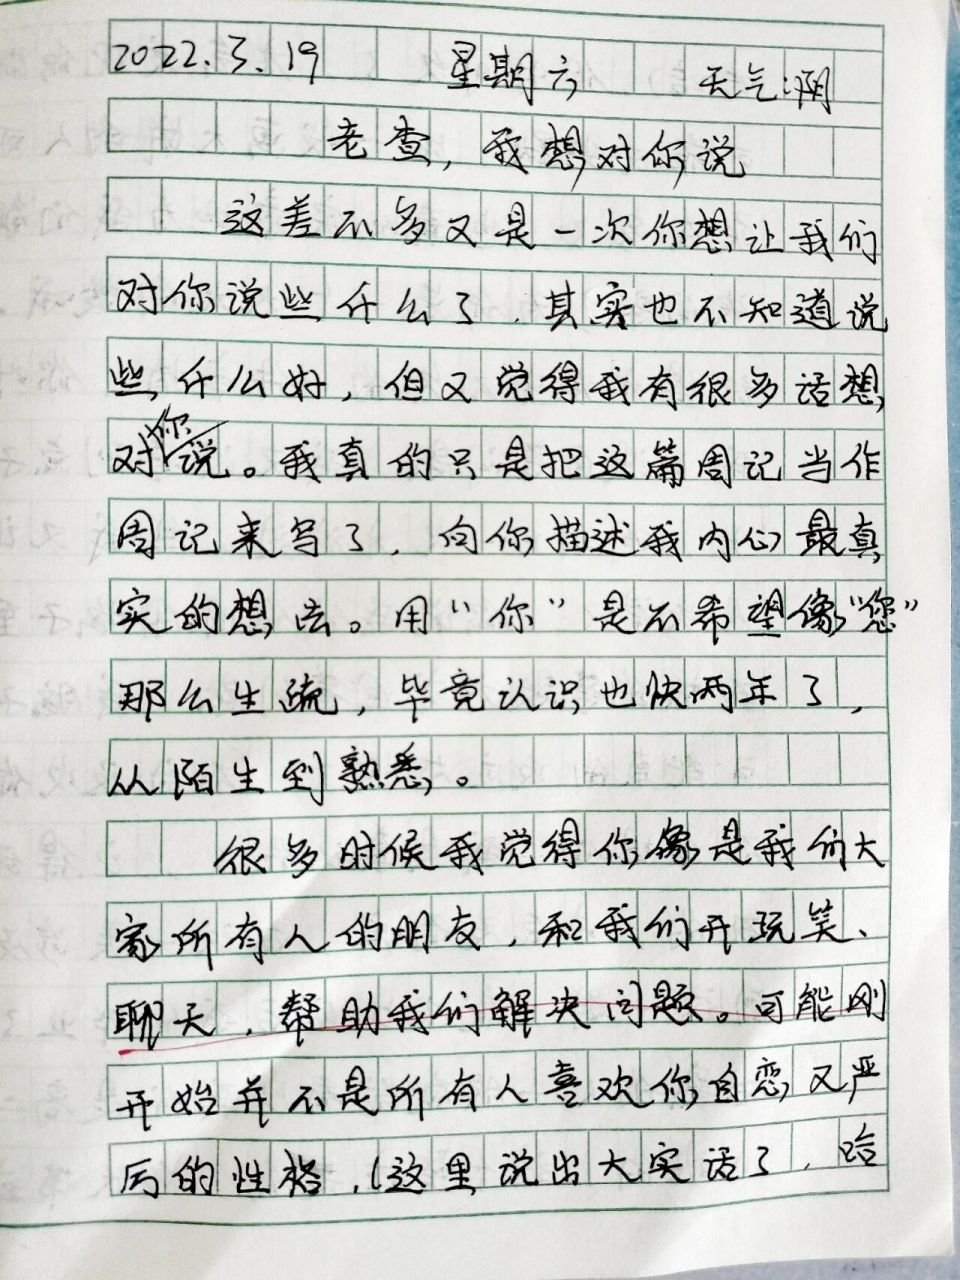 2022.3.19 星期六 天气:阴
老查，我想对你说
这差不多又是一次你想让我们
对你说些什么了，其实也不知道说
些什么好，但又觉得我有很多话想
对你说。我真的只是把这篇周记当作
周记来写了，向你描述我内心最真
实的想法。用“你”是不希望像“您”
那么生疏，毕竟认识也快两年了，
从陌生到熟悉。
很多时候我觉得你像是我们大
家所有人的朋友，和我们开玩笑、
聊天，帮助我们解决问题。可能刚
开始并不是所有人喜欢你自恋又严
厉的性格，(这里说出大实话了，哈